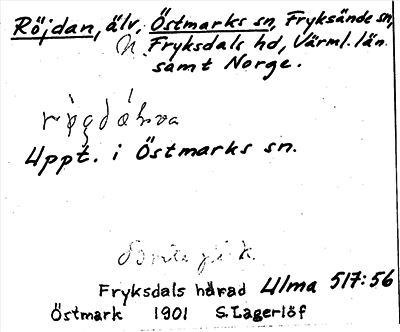 Röjdan, älv, Östmarks sn, Fryksände sn,
Fryksdals hd, Värml. län
samt Norge.
Uppt. i Östmarks sn.
Fryksdals härad Ulma 517:56
Östmark 1901 S. Lagerlöf